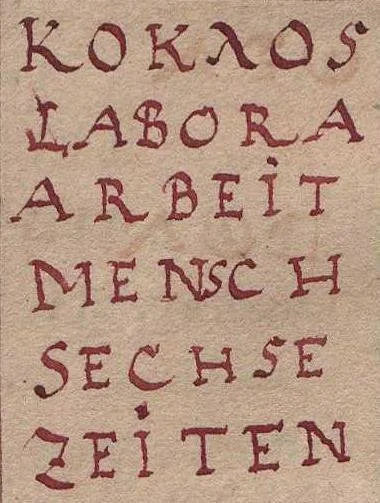 KOKλOS
LABORA
ARBEiT
MENSCH
SECHSE
ZEiTEN